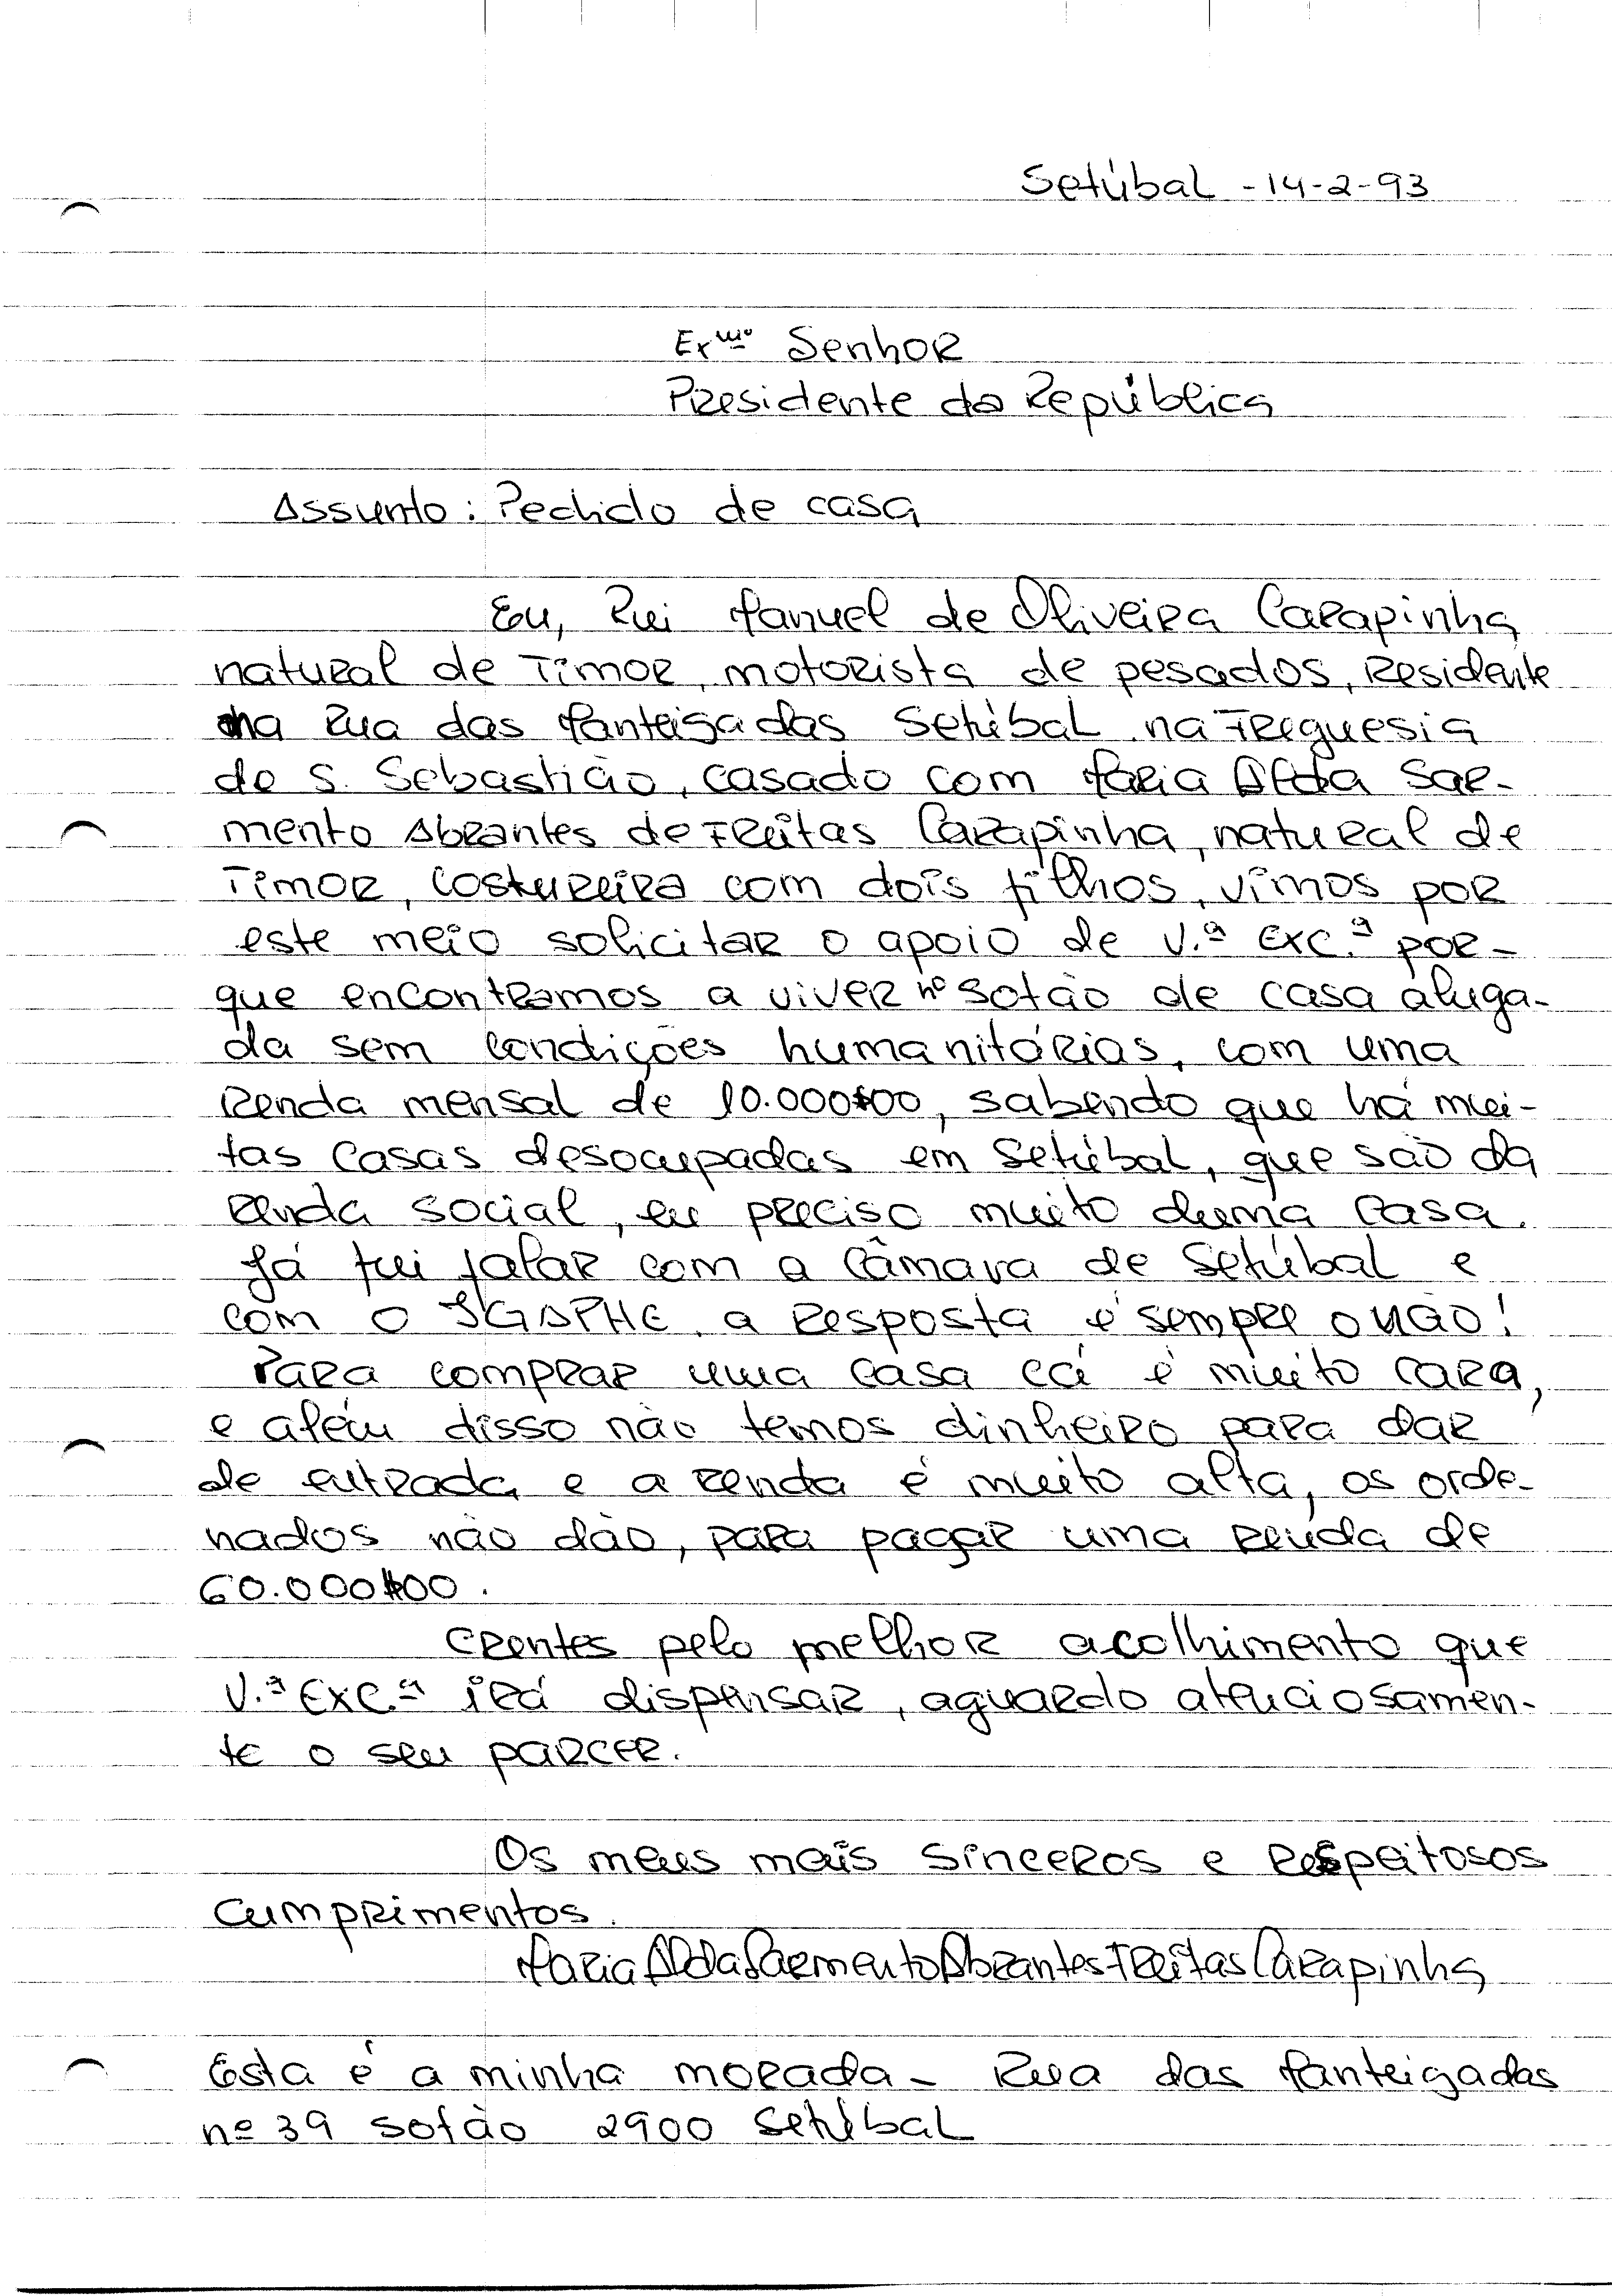 Setúbal - 14-2-93
Exmo Senhor
Presidente da República
Assunto: Pedido de casa
Eu, Rui Manuel de Oliveira Carapinha
natural de Timor, motorista de pesados, residente
na Rua das Manteigadas Setúbal na Freguesia
de S. Sebastião, casado com Maria Alda Sar-
mento Abrantes de Freitas Carapinha, natural de
Timor, Costureira com dois filhos, vimos por
este meio solicitar o apoio de V.ª Exc.ª por-
que encontramos a viver no sotão de casa aluga-
da sem condições humanitórias, com uma
renda mensal de 10.000$00, sabendo que há mui-
tas casas desocupadas em Setúbal, que são da
renda social, eu preciso muito duma casa.
Já fui falar com a Câmara de Setúbal e
com o IGAPHE, a resposta é sempre o não!
Para comprar uma casa cá é muito cara,
e além disso não temos dinheiro para dar
de entrada e a renda é muito alta, os orde-
nados não dão, para pagar uma renda de
60.000$00.
Crentes pelo melhor acolhimento que
V.ª Exc.ª irá dispensar, aguardo atenciosamen-
te o seu parcer.
Os meus mais sinceros e respeitosos
cumprimentos.
Maria Alda Sarmento Abrantes Freitas Carapinha
Esta é a minha morada - Rua das Manteigadas
nº 39 sotão 2900 Setúbal